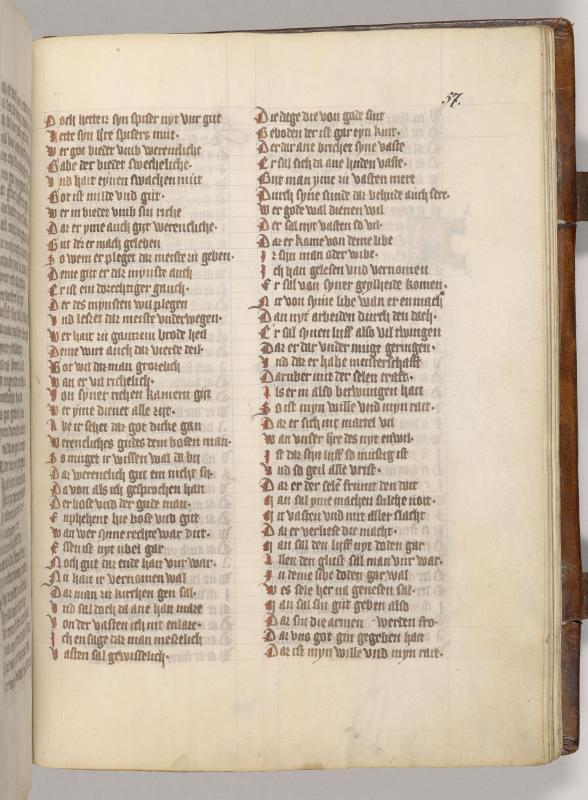 57.
Doch heiten syn spiser nyt vur gut
Neite syn ihre spisers mut.
Wer got biedet vmb werentliche
Gabe der biedet swechelliche.
Vnd hait eynen swachen mut
Got ist milde vnd gut.
Wer in biedet vmb sin riche
Dar er yme auch gyt werentliche.
Gut der er mach geleben
So wem er pleget dar meiste zu geben.
Deme gyt er dar mynste auch
Er ist ein dorechtiger gauch.
Der des mynsten wil plegen
Vnd leszet dar meiste vnderwegen.
Wer hait zu gantzem brode heil
Deme wirt auch dar vierde deil.
Got wil dar man grotzelich
Wan er vil richelich.
Von syner richen kamern git
Wer yme dienet alle zijt.
Aber ir sehet dar got dicke gan
Werentliches gudes dem bosen man.
So muget ir wissen wal da by
Dar werentlich gut ein nicht sy.
Da von als ich gesprochen han
Der bose vnd der gude man.
Enphehent hie bose vnd gut
Wan wer syne rechte war dut.
Es ist nyt vbel gar
Noch gut der ende hait vur war.
Nu hait ir vernomen wal
Dar man zu kirchen gen sal.
Vnd sal doch da ane han mare
Von der vasten ich nit enlaze.
Ich en sage dar man messelich
Vasten sal gewisselich.
Die dage die von gode sint
Geboden der ist gar eyn kint.
Der dar ane brichet syne vaste
Er sal sich da ane huden vaste.
Gut man yme zu vasten mere
Durch syne sunde dar behude auch sere.
Wer gode wal dienen wil
Der sal nyt vasten so vil.
Dar er kome von deme libe
Ir sijn man oder wibe.
Ich han gelesen vnd vernomen
Er sal von syner geylheide komen.
Nit von syme libe wan er en mach
Dan nyt arbeiden durch den dach.
Er sal synen lijff also vil twingen
Dar er dar vnder muge geringen.
Vnd dar er habe meisterschafft
Daruber mit der selen crafft.
Als er in also betwungen hait
So ist myn wille vnd myn rait.
Dar er sich nit martel vil
Wan vnser here des nyt enwil.
Ist dar syn lijff so mutzig ist
Vnd so geil alle vrist.
Dar er der sele frumt den doit
Man sal yme machen sulche noit.
Mit vasten vnd mit aller slacht
Dar er verliese die macht.
Man sal den lijff nyt doden gar
Allen den glust sal man vur war.
In deme libe doden gar wal
Wes sele her na genesen sal.
Man sal sin gut geben also
Dar sin die armen werden fro.
Dar vns got gut gegeben hait
Dar ist myn wille vnd myn rait.